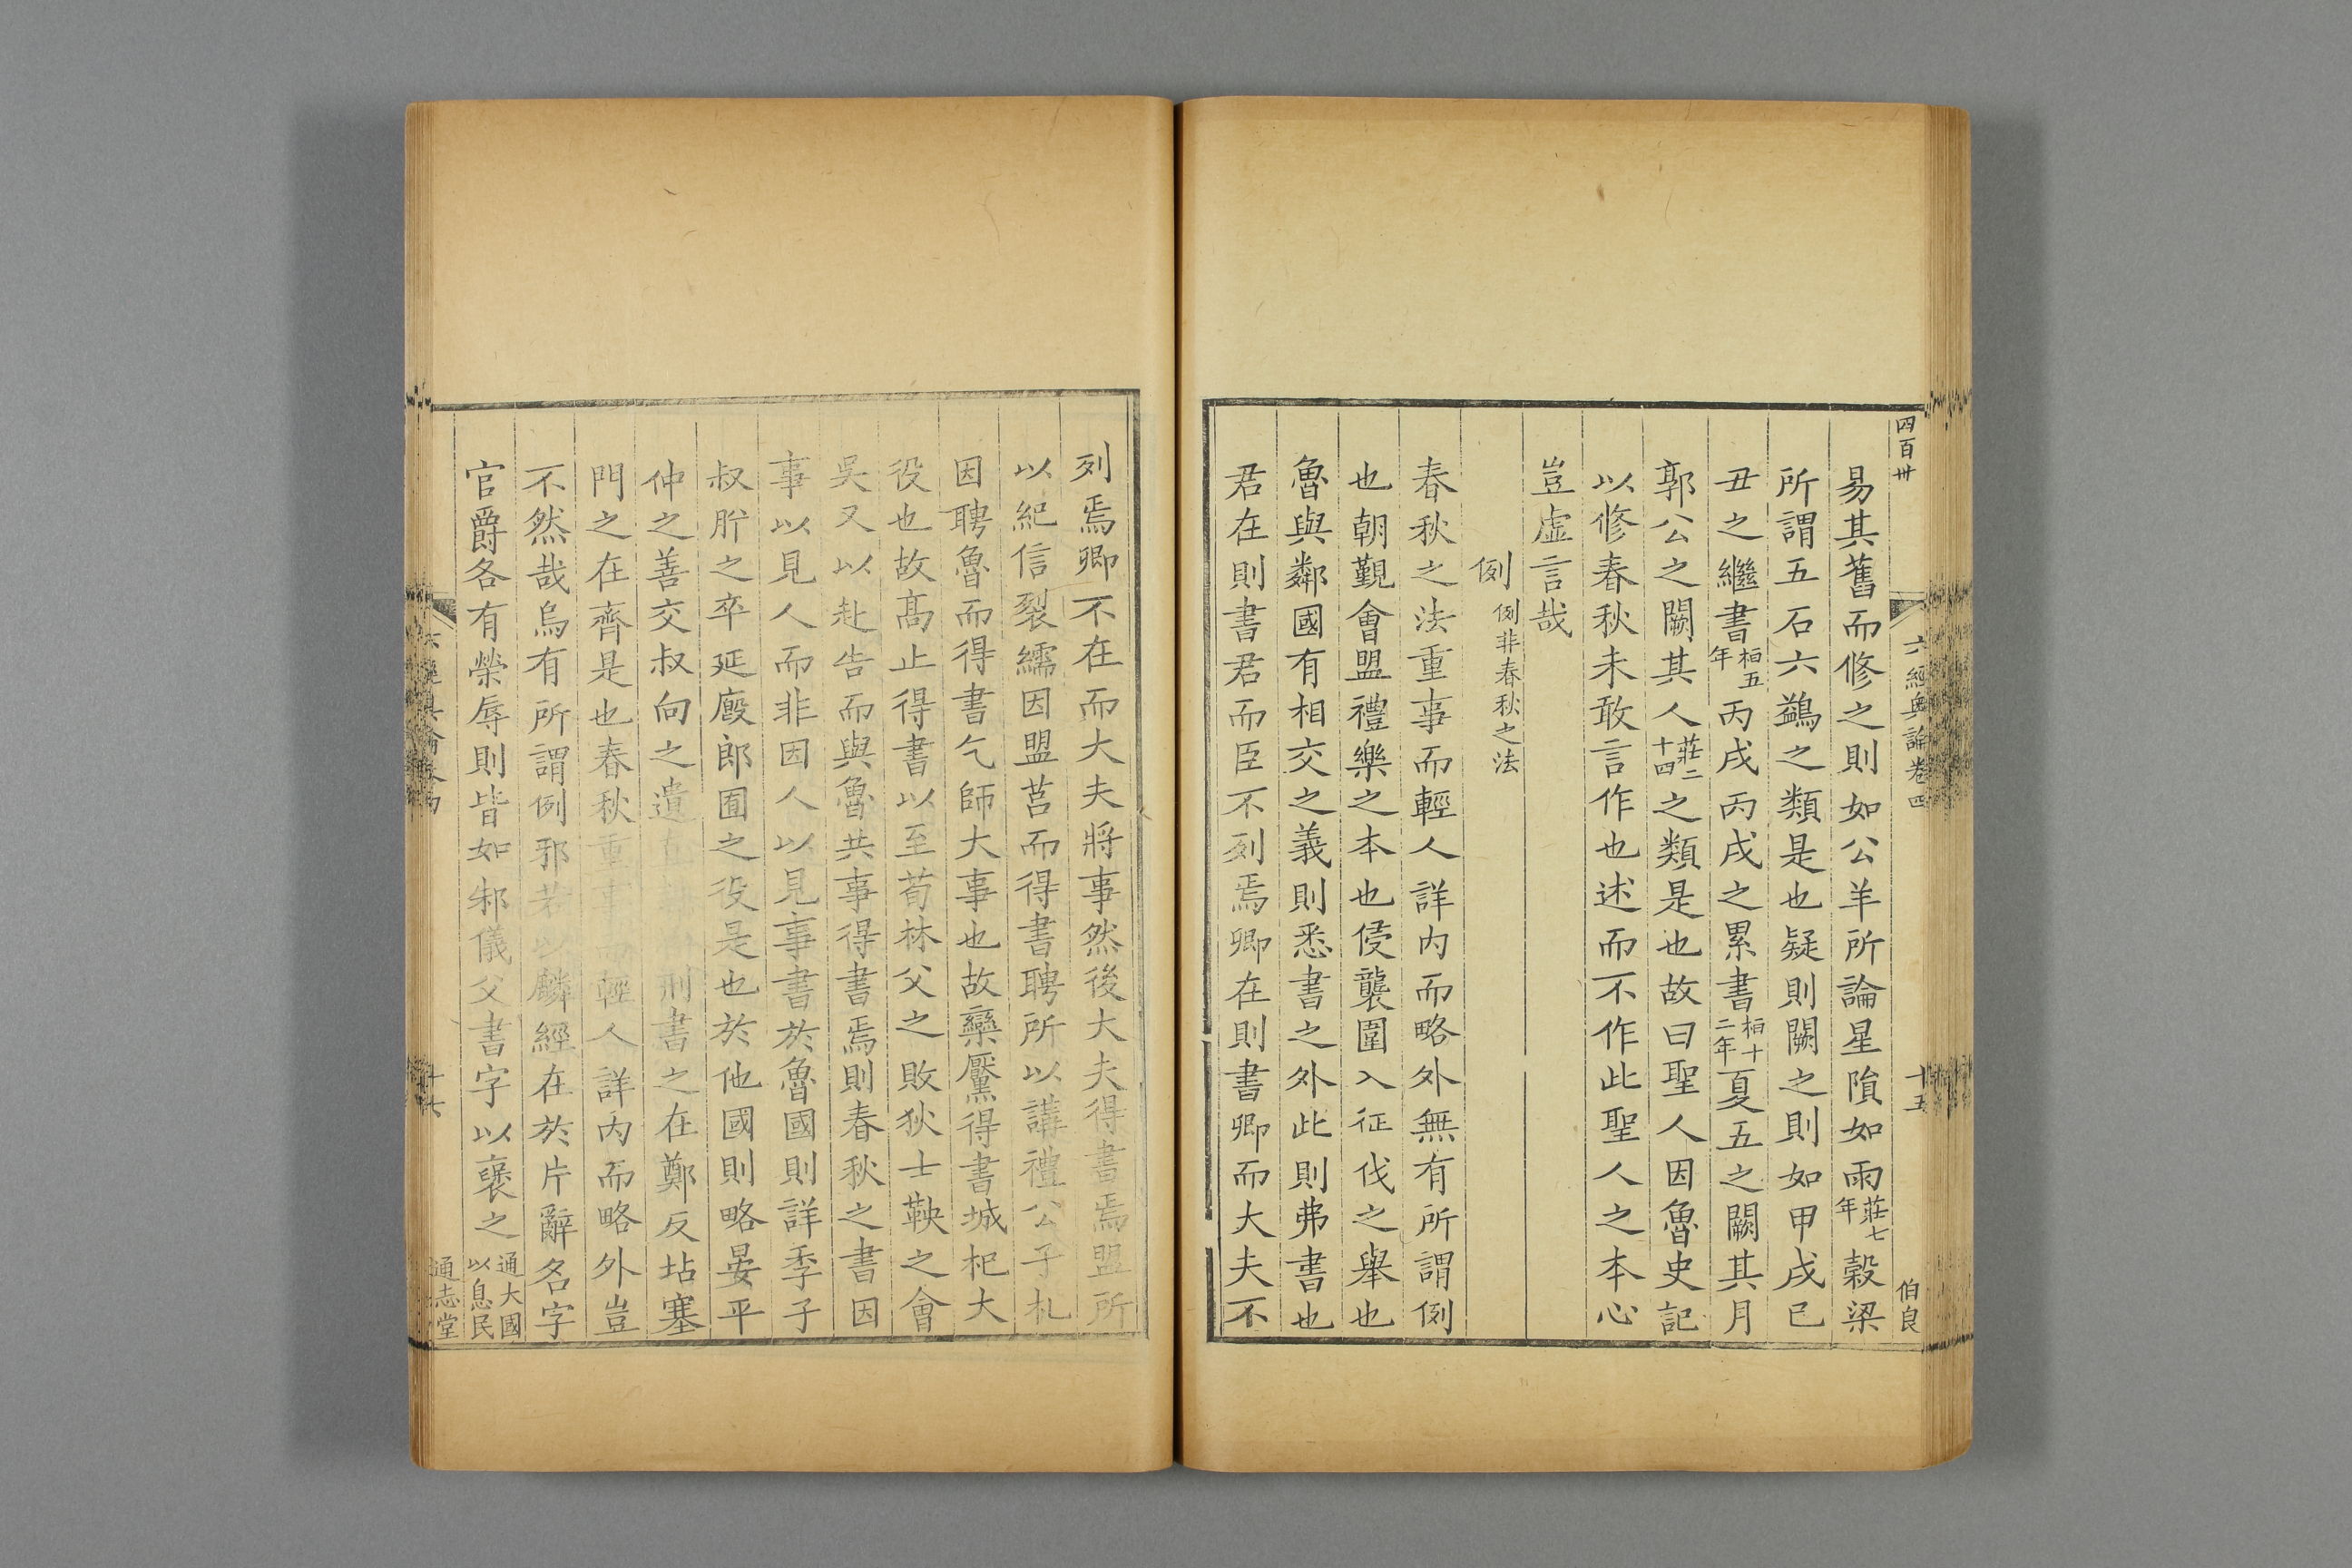 四百卅
六經奧論卷四
十五
伯良
易其舊而修之則如公羊所論星隕如雨莊七年穀梁
所謂五石六鷁之類是也疑則闕之則如甲戌已
丑之繼書桓五年丙戌丙戌之累書桓十二年夏五之闕其月
郭公之闕其人莊二十四之類是也故曰聖人因魯史記
以修春秋未敢言作也述而不作此聖人之本心
豈虛言哉
例例非春秋之法
春秋之法重事而輕人詳內而略外無有所謂例
也朝覲會盟禮樂之本也侵襲圍入征伐之舉也
魯與鄰國有相交之義則悉書之外此則弗書也
君在則書君而臣不列焉卿在則書卿而大夫不
列焉卿不在而大夫將事然後大夫得書焉盟所
以紀信裂繻因盟莒而得書聘所以講禮公子札
因聘魯而得書乞師大事也故欒黶得書城杞大
役也故高止得書以至荀林父之敗狄士鞅之會
吳又以赴告而與魯共事得書焉則春秋之書因
事以見人而非因人以見事書於魯國則詳季子
叔肸之卒延廄郎囿之役是也於他國則略晏平
仲之善交叔向之遺刑書之在鄭反坫塞
門之在齊是也春秋重事而輕人詳內而略外豈
不然哉烏有所謂例邪若以麟經在於片辭名字
官爵各有榮辱則皆如邾儀父書字以襃之通大國以息民
十七
通志堂